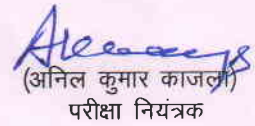 (अनिल कुमार काजला)
परीक्षा नियंत्रक